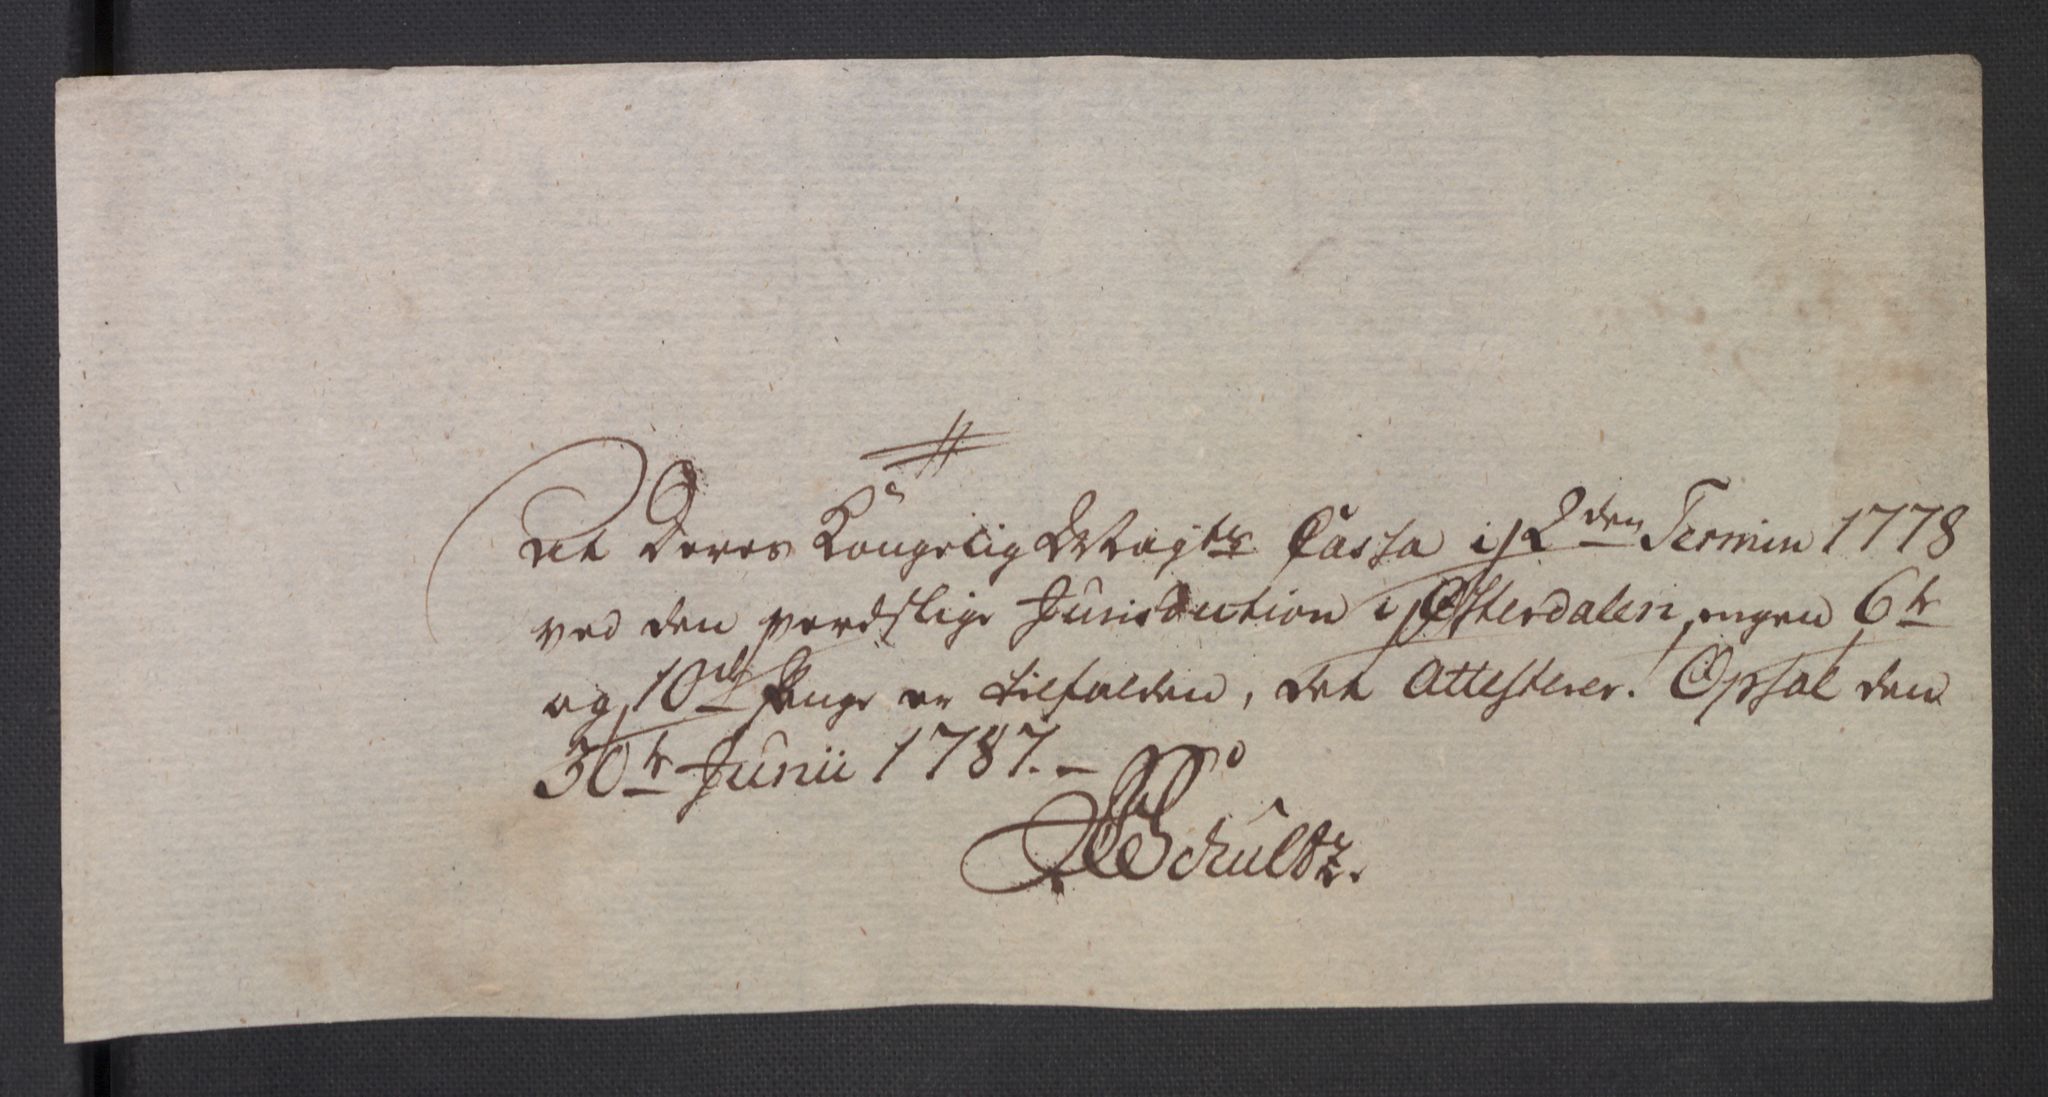 At Deres Kongelig Mayts Cassa i 2den Termin 1778
ved den verdslige Jurisdiction i Østerdalen, ingen 6te
og 10de Penge er tilfalden, det Attesterer. Opsal den
30te Junii 1787. –
Schultz.